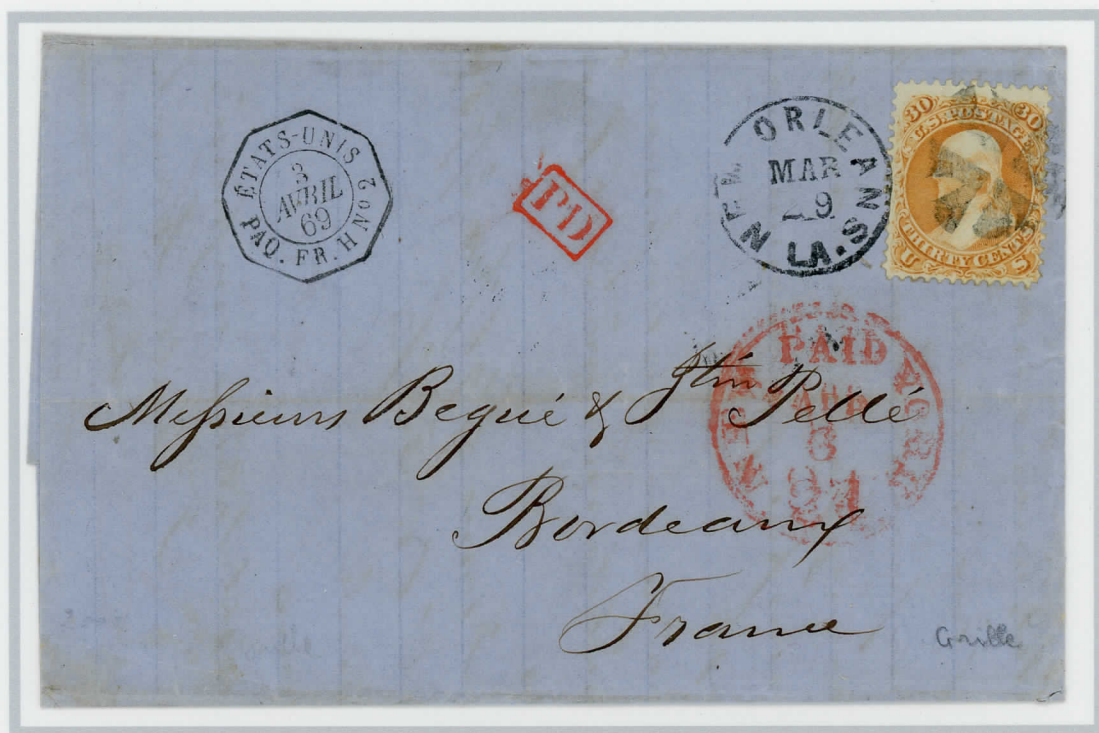 ÉTATS-UNIS
3
AVRIL
69
PAQ. FR. H No 2
PD
NEW ORLEANS
MAR
29
LA.
30 30
U.S. POSTAGE
THIRTY CENTS
U S
NEW YORK
PAID
APR
3
24
Messieurs Begué & Jtin Pellé
Bordeaux
France
Grille